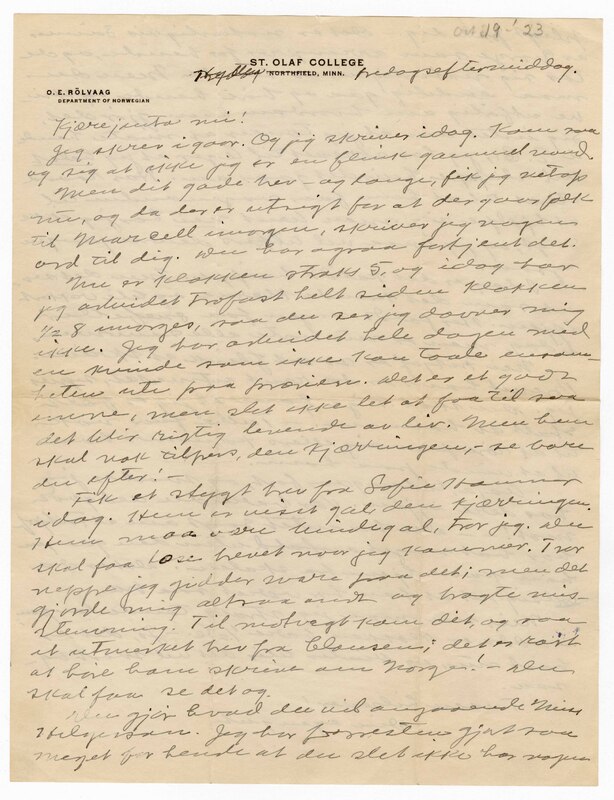 Oct 19-'23
ST. OLAF COLLEGE
NORTHFIELD, MINN.
fredagseftermiddag.
O. E. RÖLVAAG
DEPARTMENT OF NORWEGIAN
Kjære jenta mi!
Jeg skrev igaar. Og jeg skriver idag. Kom saa
og sig at ikke jeg er en flink gammel mand.
Men dit gode brev - og lange, fik jeg netop
nu, og da der er utsigt for at der gaar folk
til Marcell imorgen, skriver jeg nogen
ord til dig. Du har ogsaa fortjent det.
Nu er klokken straks 5, og idag har
jeg arbeidet trofast helt siden klokken
1/2 8 imorges, saa du ser jeg daarer mig
ikke. Jeg har arbeidet hele dagen med
en kvinde som ikke kan taale ensom-
heten ute paa prærien. Det er et godt
emne, men slet ikke let at faa til saa
det blir rigtig levende av liv. Men hun
skal nok tilpers, den kjærringen, - se bare
du efter! -
Fik et stygt brev fra Sofie Hammer
idag. Hun er visst gal, den kjærringen.
Hun maa være lindegal, tror jeg. Du
skal faa læse brevet naar jeg kommer. Tror
neppe jeg gidder svare paa det; men det
gjorde mig altsaa ondt og bragte mis-
stemning. Til motvegt kom dit, og saa
et utmerket brev fra Clausen; det er rart
at høre ham skrive om Norge! - Du
skal faa se det og.
Du gjør hvad du vil angaaende Miss
Helgeson. Jeg har forresten gjort saa
meget for hende at du slet ikke har nogen